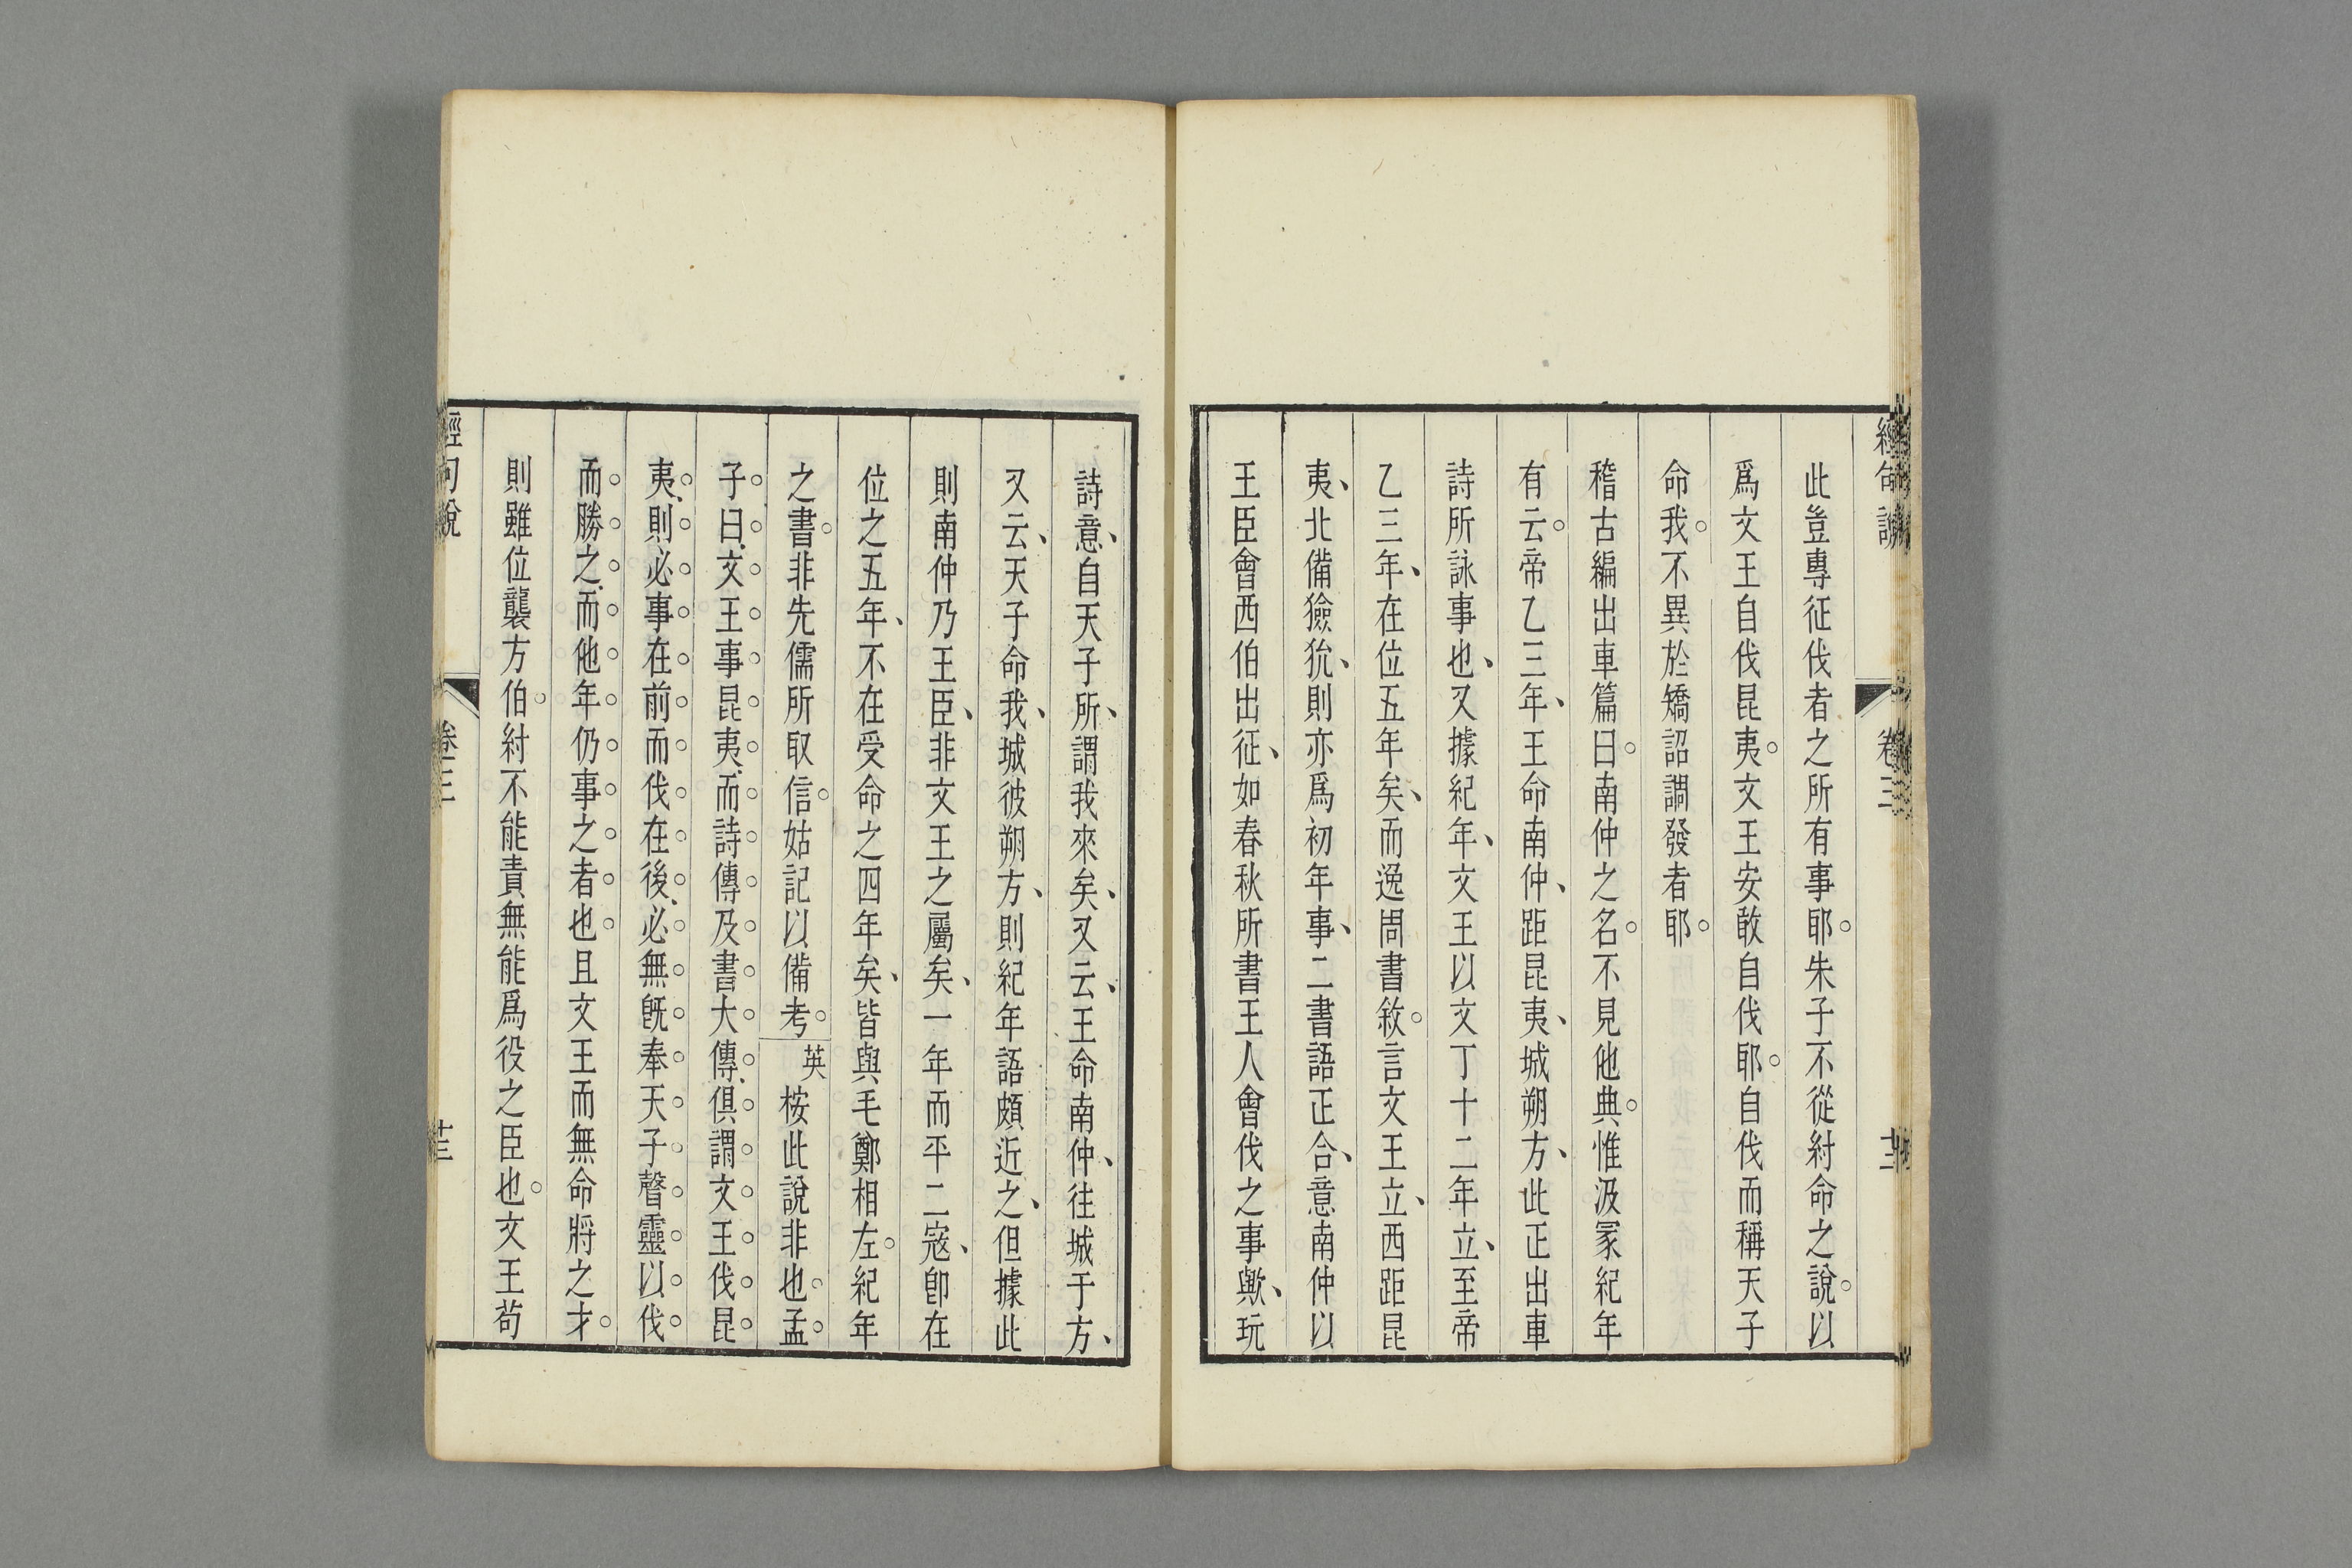 經句說
卷三
此豈專征伐者之所有事耶。朱子不從紂命之說。以
爲文王自伐昆夷。文王安敢自伐耶。自伐而稱天子
命我。不異於矯詔調發者耶。
稽古編出車篇曰。南仲之名。不見他典。惟汲冢紀年
有云。帝乙三年、王命南仲、距昆夷、城朔方、此正出車
詩所詠事也、又據紀年、文王以文丁十二年立、至帝
乙三年、在位五年矣、而逸周書敘。言文王立、西距昆
夷、北備獫狁、則亦爲初年事、二書語正合、意南仲以
王臣會西伯出征、如春秋所書王人會伐之事歟、玩
詩意、自天子所、謂我來矣、又云、王命南仲、往城于方、
又云、天子命我、城彼朔方、則紀年語頗近之、但據此
則南仲乃王臣、非文王之屬矣、一年而平二寇、卽在
位之五年、不在受命之四年矣、皆與毛鄭相左。紀年
之書。非先儒所取信。姑記以備考。英桉此說非也。孟
子曰文王事昆夷而詩傳及書大傳俱謂文王伐昆
夷則必事在前而伐在後必無旣奉天子聲靈以伐
而勝之而他年仍事之者也。且文王而無命將之才。
則雖位襲方伯。紂不能責無能爲役之臣也。文王苟
經句說
卷三